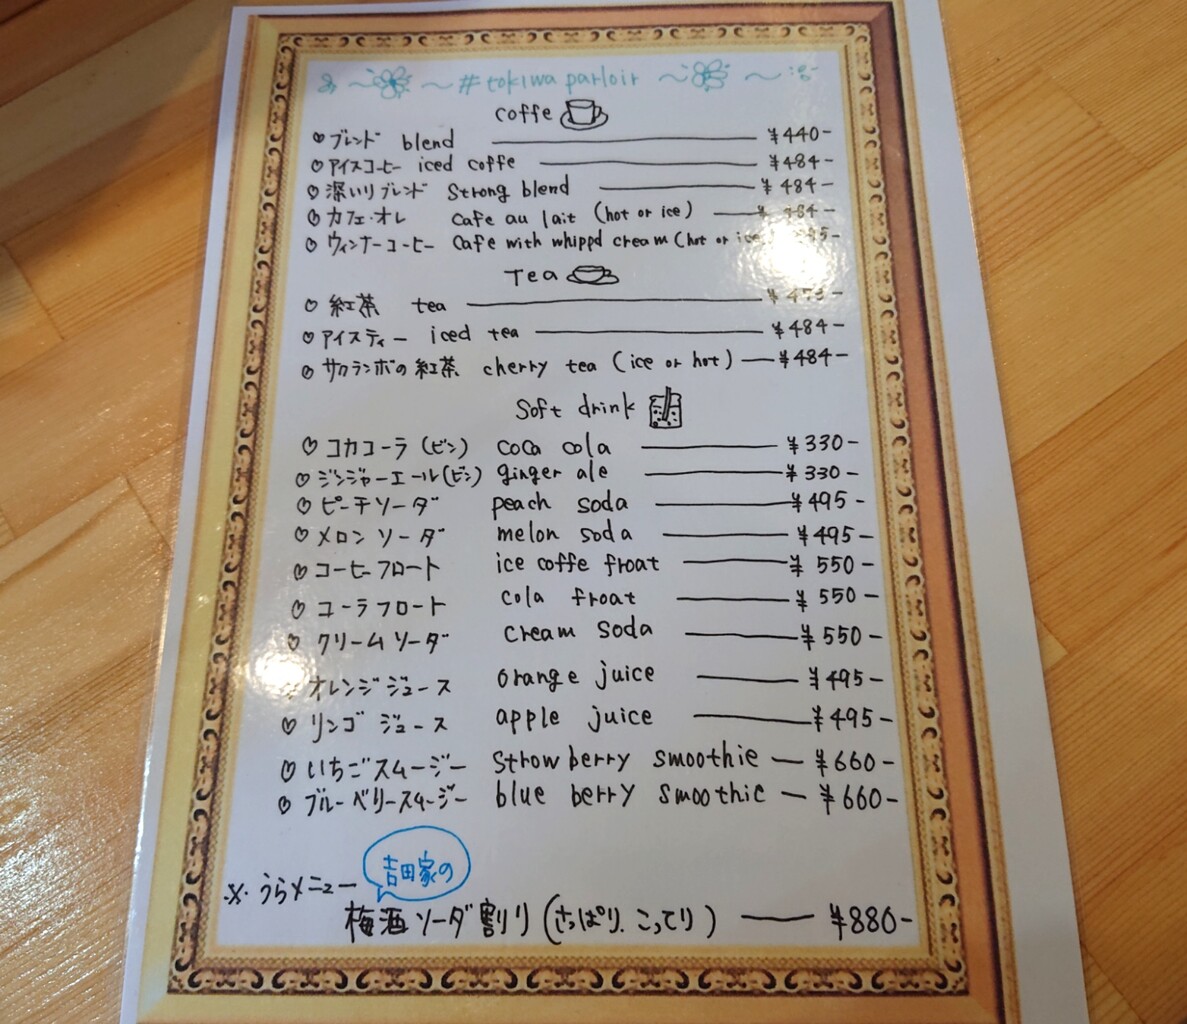 #tokiwa parloir
coffe
ブレンド blend ¥440-
アイスコーヒー iced coffe ¥484-
深いりブレンド Strong blend ¥484-
カフェ・オレ cafe au lait (hot or ice) ¥484-
ウィンナーコーヒー cafe with whippd cream (hot or ice
Tea
紅茶 tea
アイスティー iced tea ¥484-
サクランボの紅茶 cherry tea (ice or hot) ¥484-
Soft drink
コカコーラ (ビン) coca cola ¥330-
ジンジャーエール (ビン) ginger ale ¥330-
ピーチソーダ peach soda ¥495-
メロンソーダ melon soda ¥495-
コーヒーフロート ice coffe froat ¥550-
コーラフロート cola froat ¥550-
クリームソーダ cream soda ¥550-
オレンジジュース orange juice ¥495-
リンゴジュース apple juice ¥495-
いちごスムージー Strowberry smoothie ¥660-
ブルーベリースムージー blue berry smoothie ¥660-
※うらメニュー
吉田家の
梅酒ソーダ割り (さっぱり、こってり) ¥880-